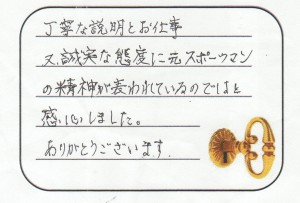 丁寧な説明とお仕事
又、誠実な態度に元スポーツマン
の精神が表われているのではと
感心しました。
ありがとうございます.